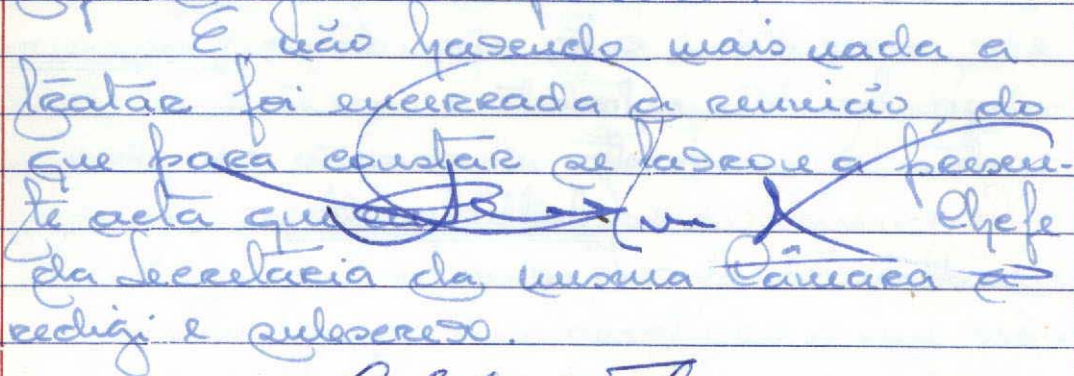 E não havendo mais nada a
tratar foi encerrada a reunião, do
que para constar se lavrou a presen-
te acta que eu Chefe
da Secretaria da mesma Câmara a
redigi e subscrevo.